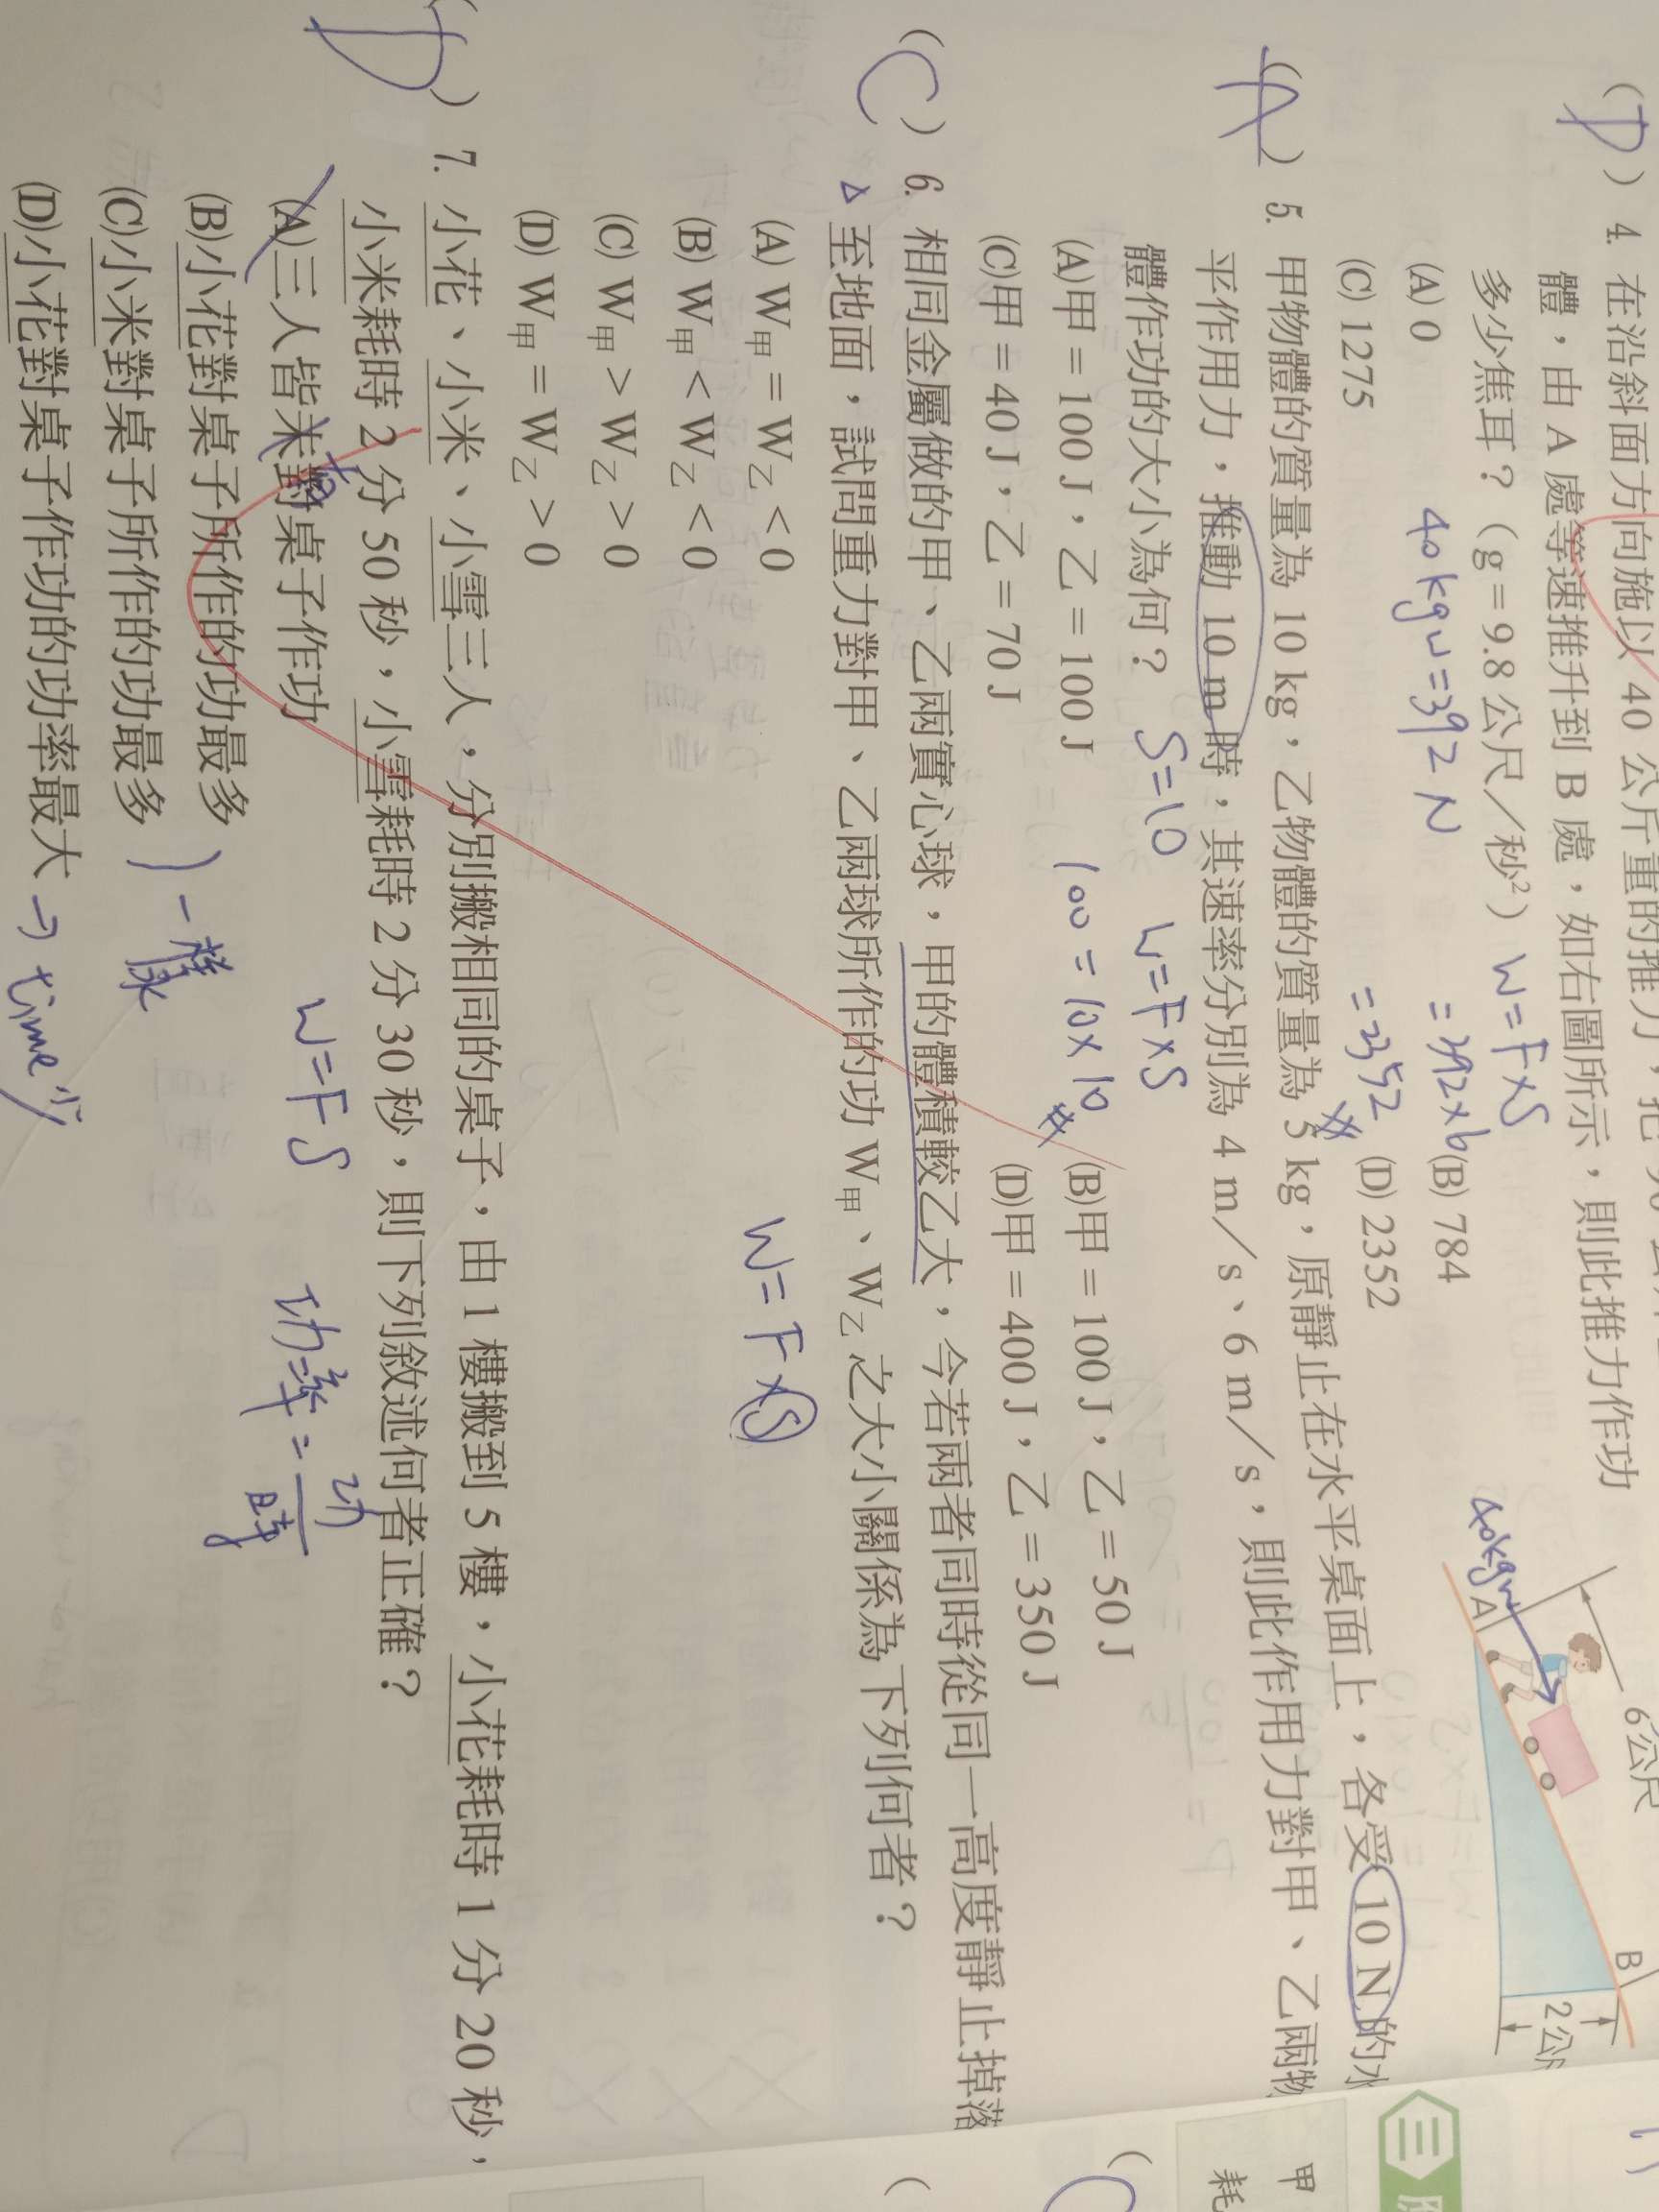 (D) 4. 在沿斜面方向施以 40 公斤重的推力,把
體,由 A 處等速推升到 B 處,如右圖所示,則此推力作功
多少焦耳?(g=9.8 公尺/秒²) W=F×S
(A) 0 40kgw=392N =392×6 (B) 784
(C) 1275 =2352 # (D) 2352
40kgw
A
6公尺
B
2公
(A) 5. 甲物體的質量為 10 kg,乙物體的質量為 5 kg,原靜止在水平桌面上,各受 10 N 的水
平作用力,推動 10 m 時,其速率分別為 4 m/s、6 m/s,則此作用力對甲、乙兩物
體作功的大小為何? S=10 W=F×S
(A)甲=100 J,乙=100 J 100=10×10 # (B)甲=100 J,乙=50 J
(C)甲=40 J,乙=70 J (D)甲=400 J,乙=350 J
(C) 6. 相同金屬做的甲、乙兩實心球,甲的體積較乙大,今若兩者同時從同一高度靜止掉落
至地面,試問重力對甲、乙兩球所作的功 W甲、W乙 之大小關係為下列何者?
(A) W甲=W乙<0
(B) W甲<W乙<0
(C) W甲>W乙>0
(D) W甲=W乙>0
W=F×S
(D) 7. 小花、小米、小雪三人,分別搬相同的桌子,由 1 樓搬到 5 樓,小花耗時 1 分 20 秒,
小米耗時 2 分 50 秒,小雪耗時 2 分 30 秒,則下列敘述何者正確?
(A)三人皆未對桌子作功 W=FS 功率=功/時
(B)小花對桌子所作的功最多
(C)小米對桌子所作的功最多 一樣
(D)小花對桌子作功的功率最大 → time少
三
甲
耗